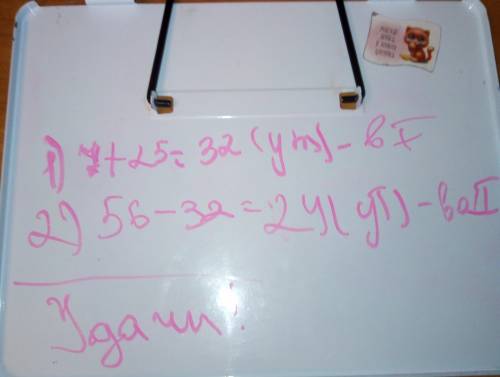 1) 7+25=32(ут)-в I
2) 56-32=24(ут)-во II
Удачи!